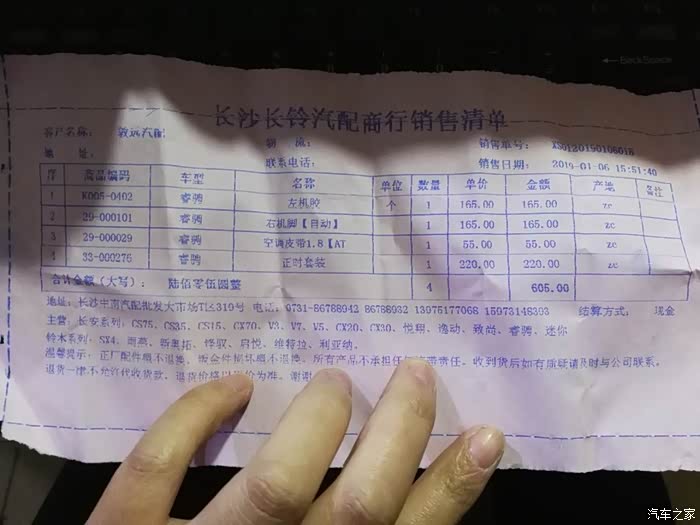 BackSpace
长沙长铃汽配商行销售清单
客户名称： 致远汽配 物 流： 销售单号： XS0120190106018
地 址： 联系电话： 销售日期： 2019-01-06 15:51:40
序 商品编码 车型 名称 单位 数量 单价 金额 产地 备注
1 K005-0402 睿骋 左机胶 个 1 165.00 165.00 zc
2 29-000101 睿骋 右机脚【自动】 1 165.00 165.00 zc
3 29-000029 睿骋 空调皮带1.8【AT 1 55.00 55.00 zc
4 33-000276 睿骋 正时套装 1 220.00 220.00 zc
合计金额（大写）： 陆佰零伍圆整 4 605.00
地址：长沙中南汽配批发大市场T区319号 电话：0731-86788942 86788932 13975177068 15973148393 结算方式： 现金
主营：长安系列：CS75、CS35、CS15、CX70、V3、V7、V5、CX20、CX30、悦翔、逸动、致尚、睿骋、迷你
铃木系列：SX4、雨燕、新奥拓、锋驭、启悦、维特拉、利亚纳、
温馨提示：正厂配件概不退换、钣金件损坏概不退换、所有产品不承担任何 责任、收到货后如有质疑请及时与公司联系。
退货一律不允许代收货款、退货价格以 价为准、谢谢
汽车之家